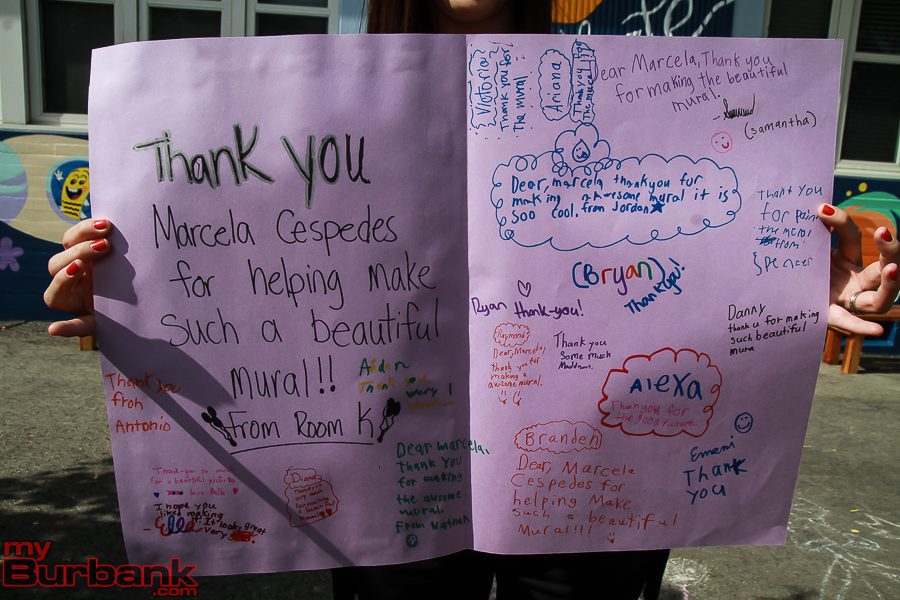 Thank you
Marcela Cespedes
for helping make
such a beautiful
mural!!
From Room K
Thank you
from
Antonio
Aidan
Thank you
very
Thank-you
for a beautiful
xoxo love Bella
I hope you
liked making
it. It looks great
very
Ella
Diana
Dear Marcela,
Thank you
for making
the
mural.
From Nathan
Victoria
Thank you for
The mural
Ariana
Thank you
The
Dear Marcela, Thank you
for making the beautiful
mural.
(samantha)
Dear, marcela thankyou for
making awesome mural it is
soo cool. from Jordan
Thank you
for
the
from
Spencer
(Bryan)
Thankyou!
Ryan thank-you!
Raymond
Dear, Marcela,
thank you for
making a
awsome mural.
Thank you
some much
Danny
thank u for making
such beautiful
mura
Alexa
Thankyou for
the good picture.
Branden
Dear, Marcela
Cespedes for
helping Make
such a beautiful
Mural!!!
Emeni
Thank
you
my
Burbank
.com